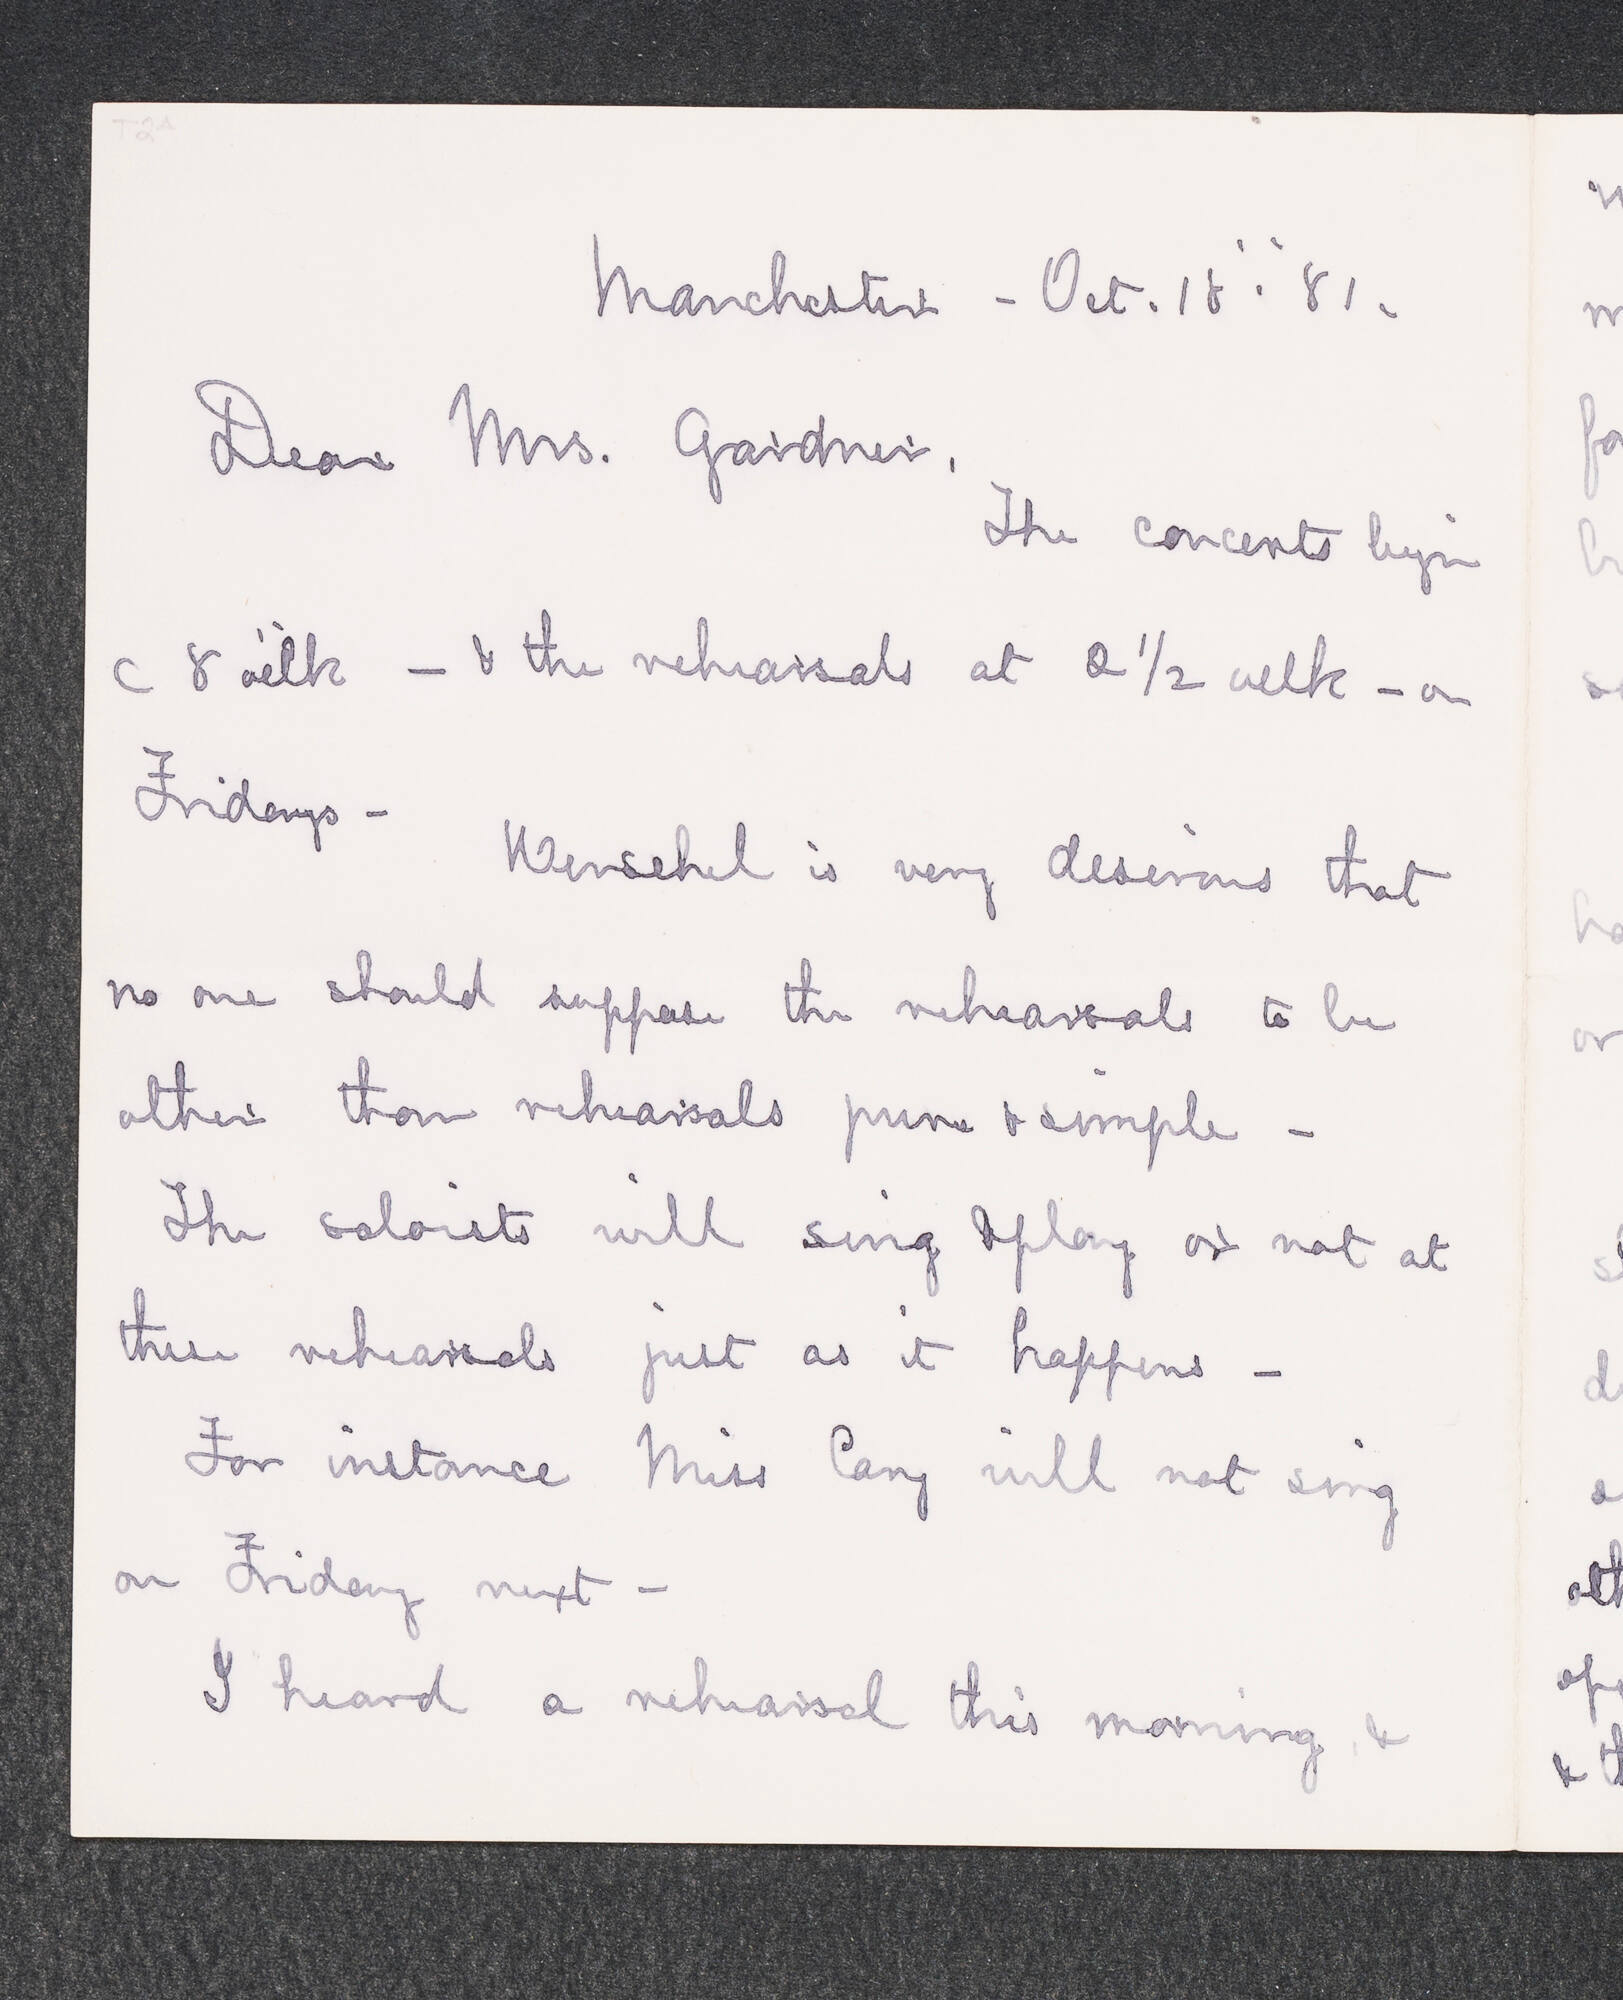 Manchester - Oct. 18". 81.
Dear Mrs. Gardner,
The concerts begin
8 oclk - & the rehearsals at 2 1/2 oclk - on
Fridays -
Henschel is very desirous that
no one should suppose the rehearsals to be
other than rehearsals pure & simple -
The soloists will sing & play or not at
these rehearsals just as it happens -
For instance Miss Cary will not sing
on Friday next -
I heard a rehearsal this morning, &